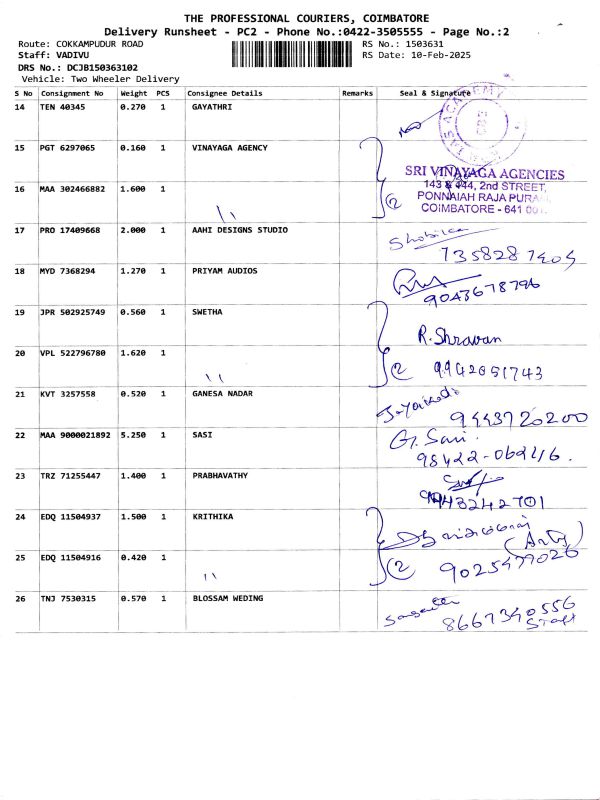 THE PROFESSIONAL COURIERS, COIMBATORE
Delivery Runsheet - PC2 - Phone No.:0422-3505555 - Page No.:2
Route: COKKAMPUDUR ROAD RS No.: 1503631
Staff: VADIVU RS Date: 10-Feb-2025
DRS No.: DCJB150363102
Vehicle: Two Wheeler Delivery
S No Consignment No Weight PCS Consignee Details Remarks Seal & Signature
14 TEN 40345 0.270 1 GAYATHRI
15 PGT 6297065 0.160 1 VINAYAGA AGENCY
SRI VINAYAGA AGENCIES
143 & 144, 2nd STREET,
PONNAIAH RAJA PURAM,
COIMBATORE - 641 001.
16 MAA 302466882 1.600 1 \\ 2
17 PRO 17409668 2.000 1 AAHI DESIGNS STUDIO
18 MYD 7368294 1.270 1 PRIYAM AUDIOS 9043678796
19 JPR 502925749 0.560 1 SWETHA R. Shravan
20 VPL 522796780 1.620 1 \\ 2
21 KVT 3257558 0.520 1 GANESA NADAR 9443720200
22 MAA 9000021892 5.250 1 SASI G. Sasi.
23 TRZ 71255447 1.400 1 PRABHAVATHY 9432242701
24 EDQ 11504937 1.500 1 KRITHIKA
25 EDQ 11504916 0.420 1 \\ 2 9025477026
26 TNJ 7530315 0.570 1 BLOSSAM WEDING 8667340556
Staff